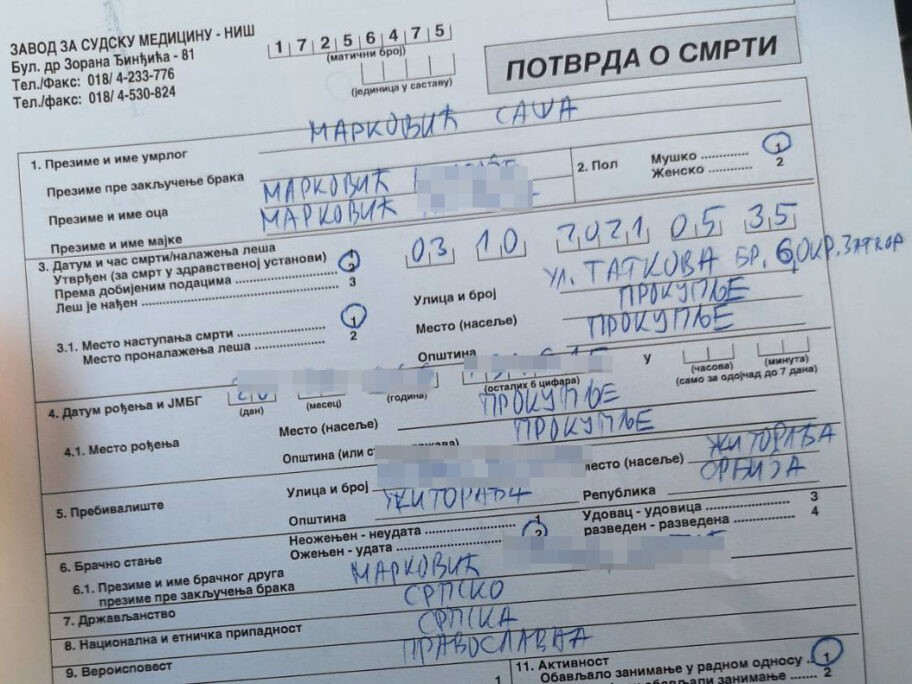 ЗАВОД ЗА СУДСКУ МЕДИЦИНУ - НИШ
Бул. др Зорана Ђинђића - 81
Тел./Факс: 018/ 4-233-776
Тел./факс: 018/ 4-530-824
1 7 2 5 6 4 7 5
(матични број)
(јединица у саставу)
ПОТВРДА О СМРТИ
1. Презиме и име умрлог МАРКОВИЋ САША
Презиме пре закључење брака
Презиме и име оца МАРКОВИЋ
Презиме и име мајке МАРКОВИЋ
2. Пол Мушко 1
Женско 2
3. Датум и час смрти/налажења леша 03 10 2021 05 35
Утврђен (за смрт у здравственој установи)
Према добијеним подацима
Леш је нађен 3
Улица и број УЛ. ТАТКОВА БР. 6, ОКР. ЗАТВОР
3.1. Место наступања смрти 1
Место проналажења леша 2
Место (насеље) ПРОКУПЉЕ
Општина ПРОКУПЉЕ
4. Датум рођења и ЈМБГ
(дан) (месец) (година) (осталих 6 цифара) у (часова) (минута)
(само за одојчад до 7 дана)
4.1. Место рођења Место (насеље) ПРОКУПЉЕ
Општина (или ПРОКУПЉЕ
5. Пребивалиште Улица и број место (насеље) ЖИТОРАЂА
Општина ЖИТОРАЂА Република СРБИЈА
6. Брачно стање Неожењен - неудата 1
Ожењен - удата 2
Удовац - удовица 3
разведен - разведена 4
6.1. Презиме и име брачног друга
презиме пре закључења брака МАРКОВИЋ
7. Држављанство СРПСКО
8. Национална и етничка припадност СРПСКА
9. Вероисповест ПРАВОСЛАВНА
1
11. Активност
Обављало занимање у радном односу 1
обављали занимање 2